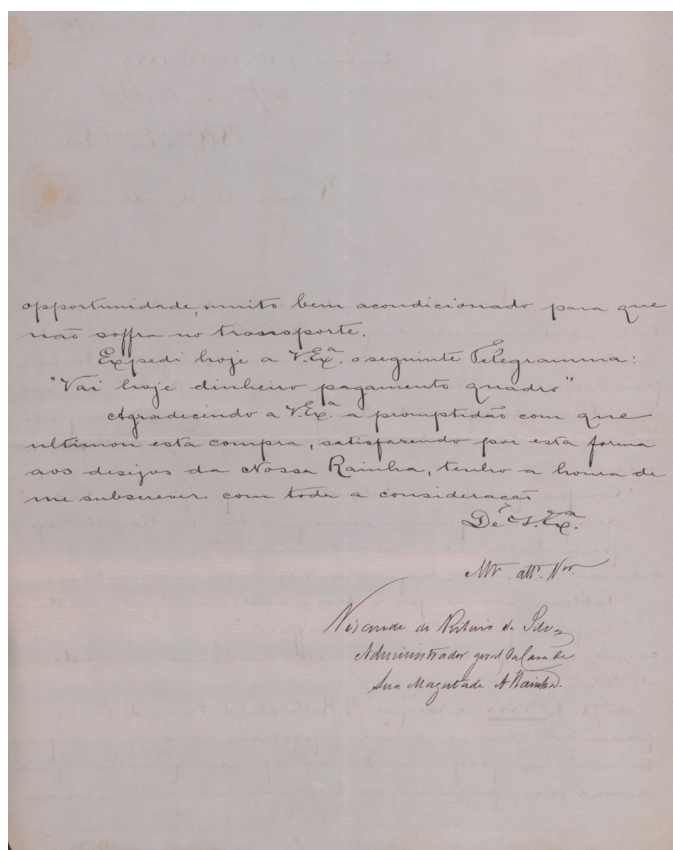 opportunidade, muito bem acondicionado para que
não soffra no transporte.
Expedi hoje a V.Exª. o seguinte Telegramma:
"Vai hoje dinheiro pagamento quadro"
Agradecendo a V.Exª a promptidão com que
ultimou esta compra, satisfazendo por esta forma
aos desejos da Nossa Rainha, tenho a honra de
me subscrever com toda a consideraçaõ
De V.Exª.
Mto. attº. Vor.
Visconde de Ribeiro da Silva
Administrador geral da Casa de
Sua Magestade A Rainha.